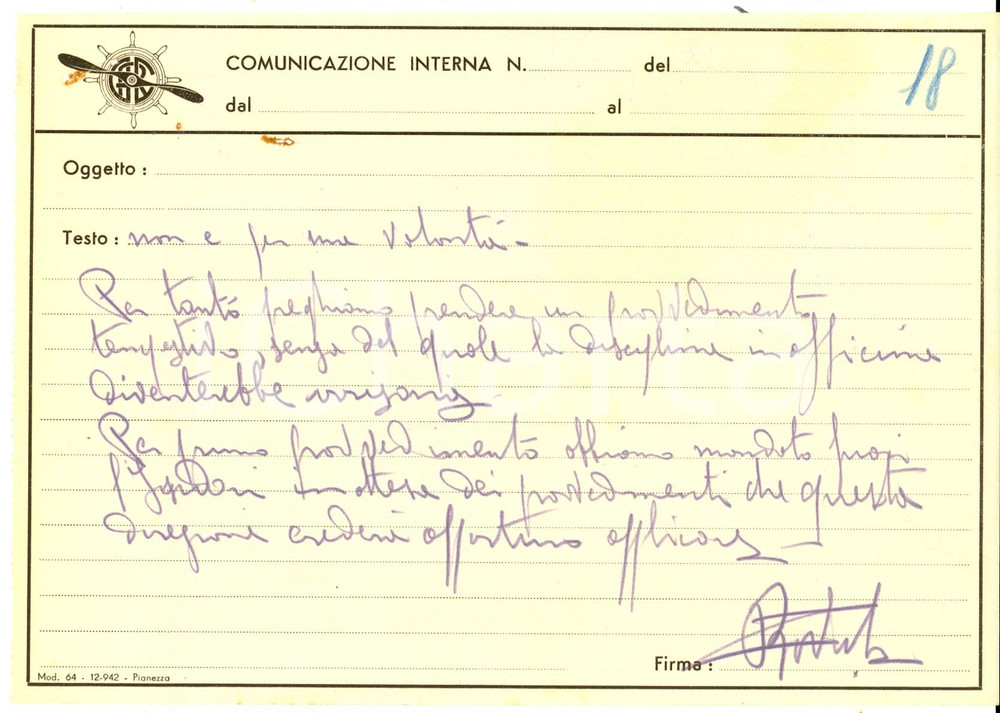 COMUNICAZIONE INTERNA N. del 18
dal al
Oggetto :
Testo : non e per sua volontà -
Per tanto preghiamo prendere un provvedimento
tempestivo, senza del quale la disciplina in officina
diventerebbe
Per primo provvedimento abbiamo mandato fuori
in attesa dei provvedimenti che questa
direzione crederà opportuno applicare -
Firma :
Mod. 64 - 12-942 - Pianezza